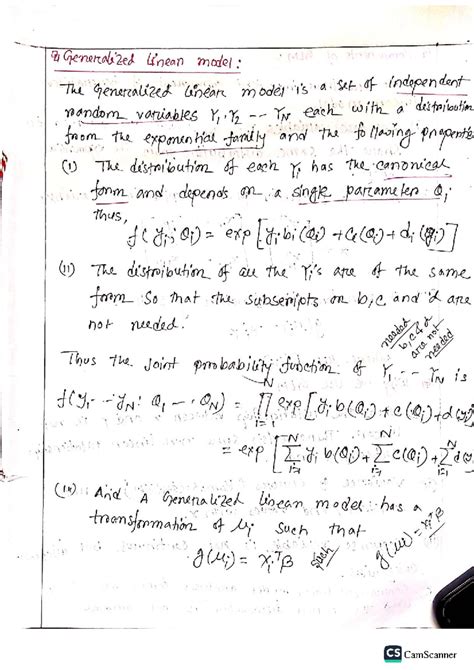 Generalized linear model:
The Generalized linear model is a set of independent
random variables Y₁, Y₂ -- Y_N each with a distribution
from the exponential family and the following properties
(i) The distribution of each Yᵢ has the canonical
form and depends on a single parameter θᵢ
thus,
f(yᵢ; θᵢ) = exp[yᵢ bᵢ(θᵢ) + cᵢ(θᵢ) + dᵢ(yᵢ)]
(ii) The distribution of all the Yᵢ's are of the same
form so that the subscripts on b, c and d are
not needed.
needed
b, c & d
are not
needed
Thus the Joint probability function of Y₁ -- Y_N is
f(y₁ -- y_N; θ₁ -- θ_N) = ∏ᵢ₌₁ᴺ exp[yᵢ b(θᵢ) + c(θᵢ) + d(yᵢ)]
= exp[∑ᵢ₌₁ᴺ yᵢ b(θᵢ) + ∑ᵢ₌₁ᴺ c(θᵢ) + ∑ᵢ₌₁ᴺ d(y
And A Generalized linear model has a
transformation of μᵢ such that
g(μᵢ) = xᵢᵀβ g(μᵢ) = xᵢᵀβ
CS CamScanner